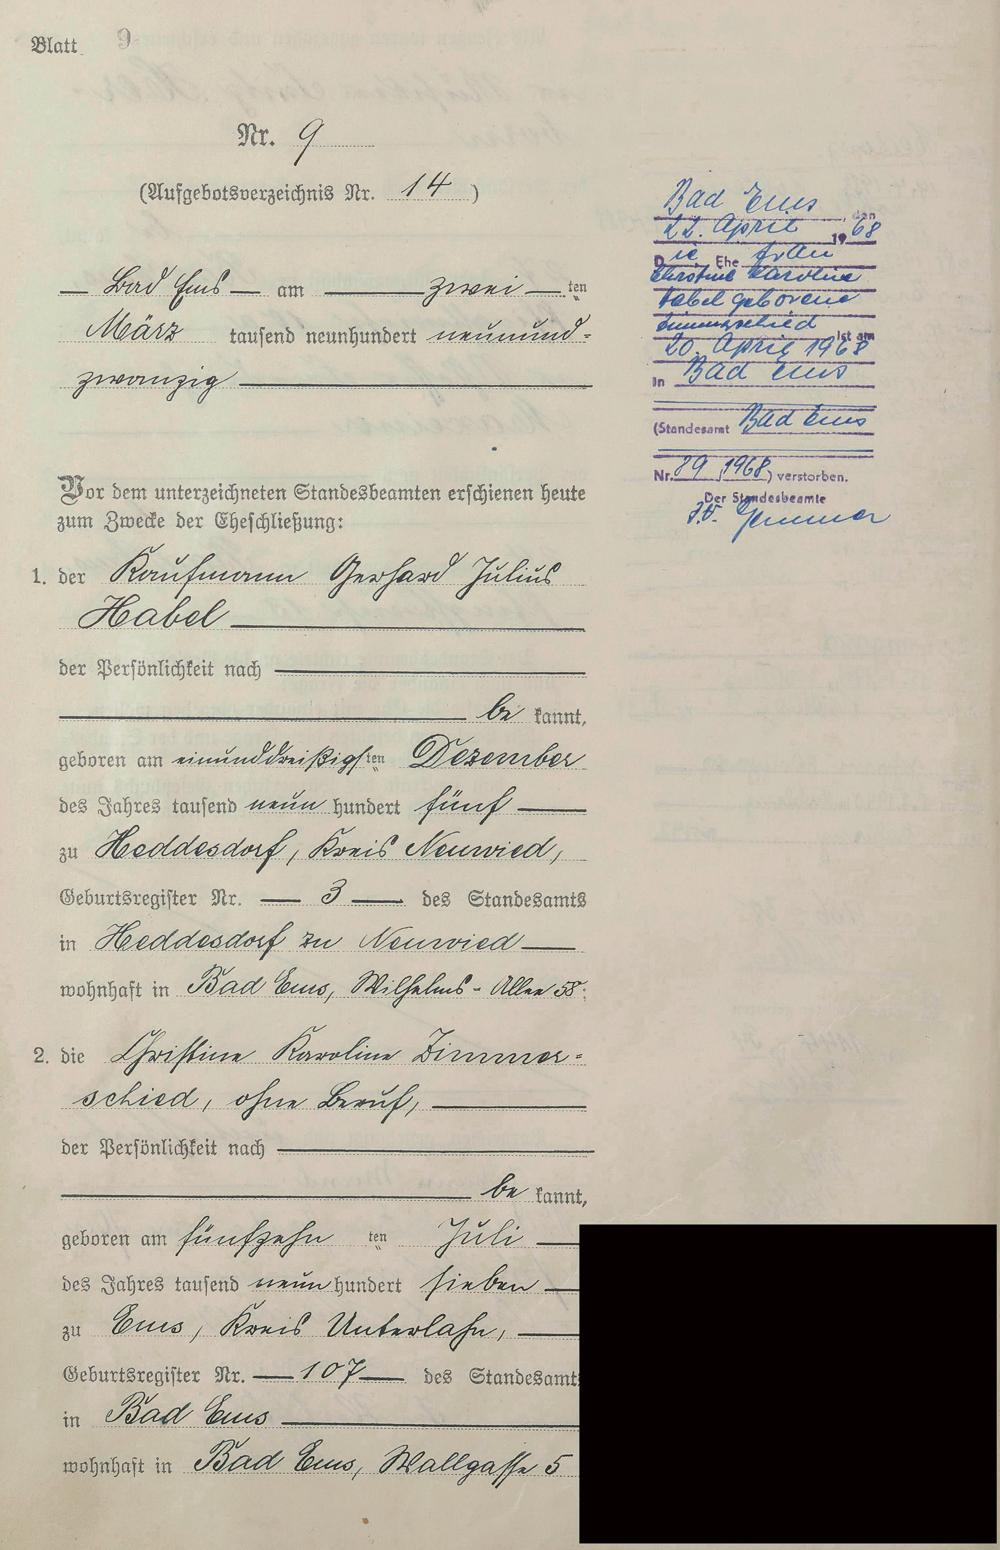 Blatt 9
Nr. 9
(Aufgebotsverzeichnis Nr. 14)
Bad Ems am zwei ten
März tausend neunhundert neunund-
zwanzig
Vor dem unterzeichneten Standesbeamten erschienen heute
zum Zwecke der Eheschließung:
1. der Kaufmann Gerhard Julius
Habel
der Persönlichkeit nach
be kannt,
geboren am einunddreißigsten Dezember
des Jahres tausend neun hundert fünf
zu Heddesdorf, Kreis Neuwied,
Geburtsregister Nr. 3 des Standesamts
in Heddesdorf zu Neuwied
wohnhaft in Bad Ems, Wilhelms-Allee 58.
2. die Christine Karoline Zimmer-
schied, ohne Beruf,
der Persönlichkeit nach
be kannt,
geboren am fünfzehn ten Juli
des Jahres tausend neun hundert sieben
zu Ems, Kreis Unterlahn,
Geburtsregister Nr. 107 des Standesamts
in Bad Ems
wohnhaft in Bad Ems, Wallgasse 5
Bad Ems, den
22. April 1968
Die Ehefrau
Christine Karoline
Habel geborene
Zimmerschied ist am
20. April 1968
in Bad Ems
(Standesamt Bad Ems
Nr. 89/1968) verstorben.
Der Standesbeamte